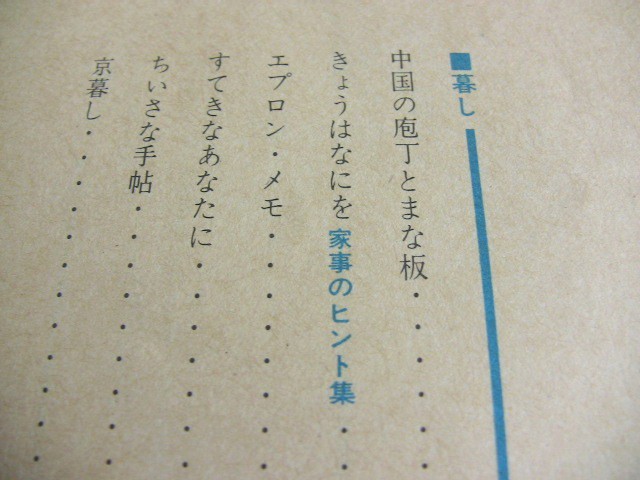 ■暮し
中国の庖丁とまな板・・・・
きょうはなにを 家事のヒント集・・
エプロン・メモ・・・・・・・・
すてきなあなたに・・・・・・・
ちいさな手帖・・・・・・・・・
京暮し・・・・・・・・・・・・